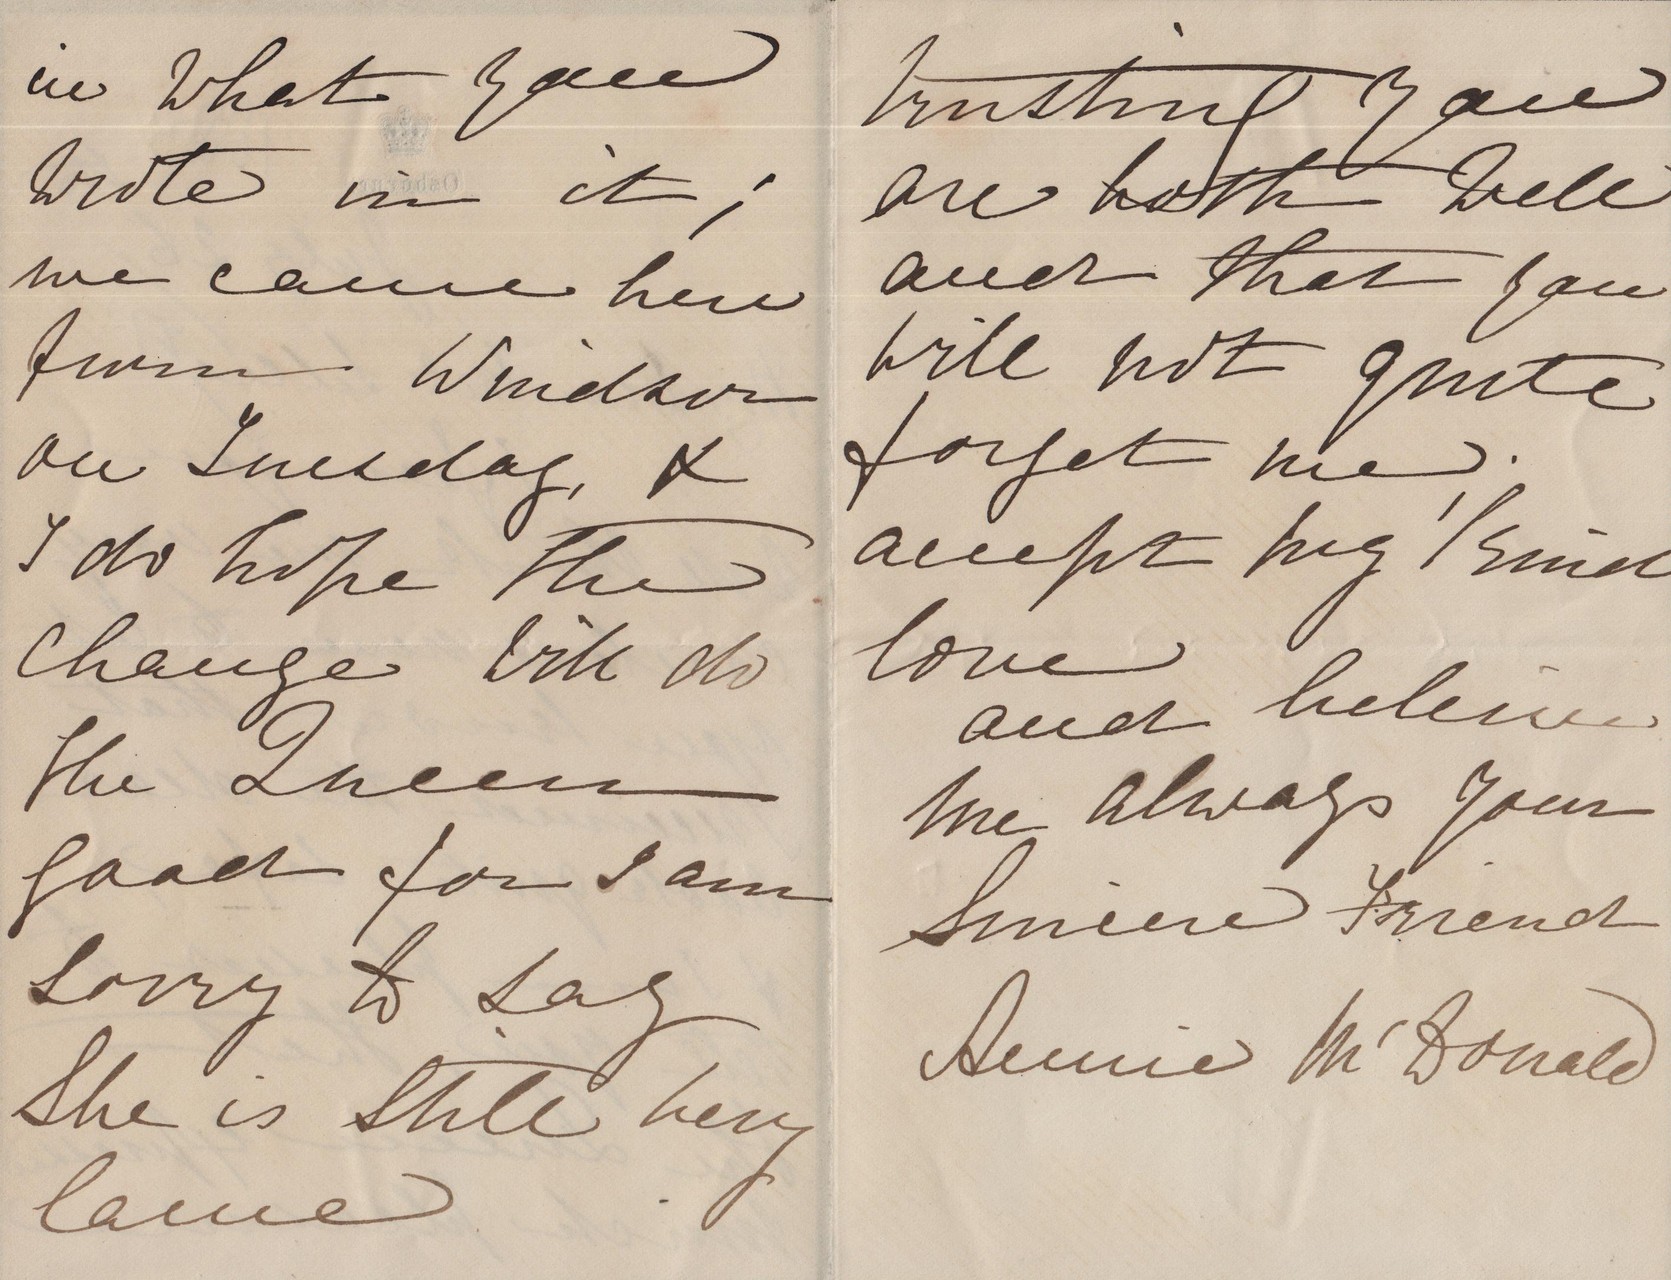 in what you
wrote in it;
we came here
from Windsor
on Tuesday, &
I do hope the
change will do
the Queen
good for I am
sorry to say
She is still very
lame.
trusting you
are both well
and that you
will not quite
forget me.
accept my kind
love
and believe
me always your
Sincere Friend
Annie McDonald
Osborne